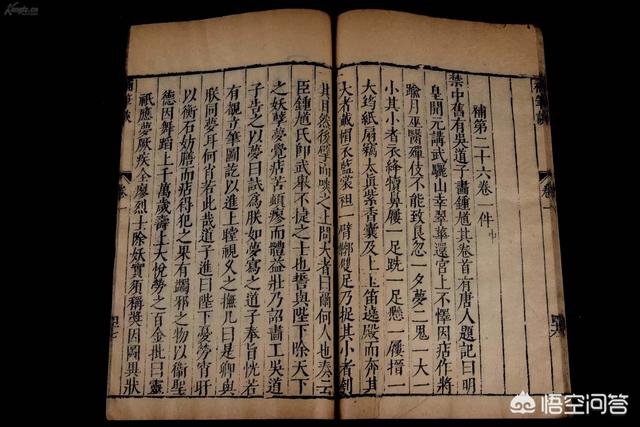 補筆談 卷一
補第二十六卷一件 中
禁中舊有吳道子畫鍾馗其卷首有唐人題記曰明
皇開元講武驪山幸翠華還宮上不懌因痁作將
踰月巫醫殫伎不能致良忽一夕夢二鬼一大一
小其小者衣絳犢鼻屨一足跣一足懸一屨搢一
大筠紙扇竊太眞紫香囊及上玉笛遶殿而奔其
大者戴帽衣藍裳袒一臂鞹雙足乃捉其小者刳
其目然後擘而啖之上問大者曰爾何人也奏云
臣鍾馗氏即武舉不捷之士也誓與陛下除天下
之妖孽夢覺痁苦頓瘳而體益壯乃詔畫工吳道
子告之以夢曰試爲朕如夢寫之道子奉旨恍若
有覩立筆圖訖以進上瞠視久之撫几曰是卿與
朕同夢耳何肖若此哉道子進曰陛下憂勞宵旰
以衡石妨膳而痁得犯之果有蠲邪之物以衛聖
德因舞蹈上千萬歲壽上大悅勞之百金批曰靈
祇應夢厥疾全瘳烈士除妖實須稱奬因圖異狀
補筆談 卷一
Kongfz.cn
悟空问答